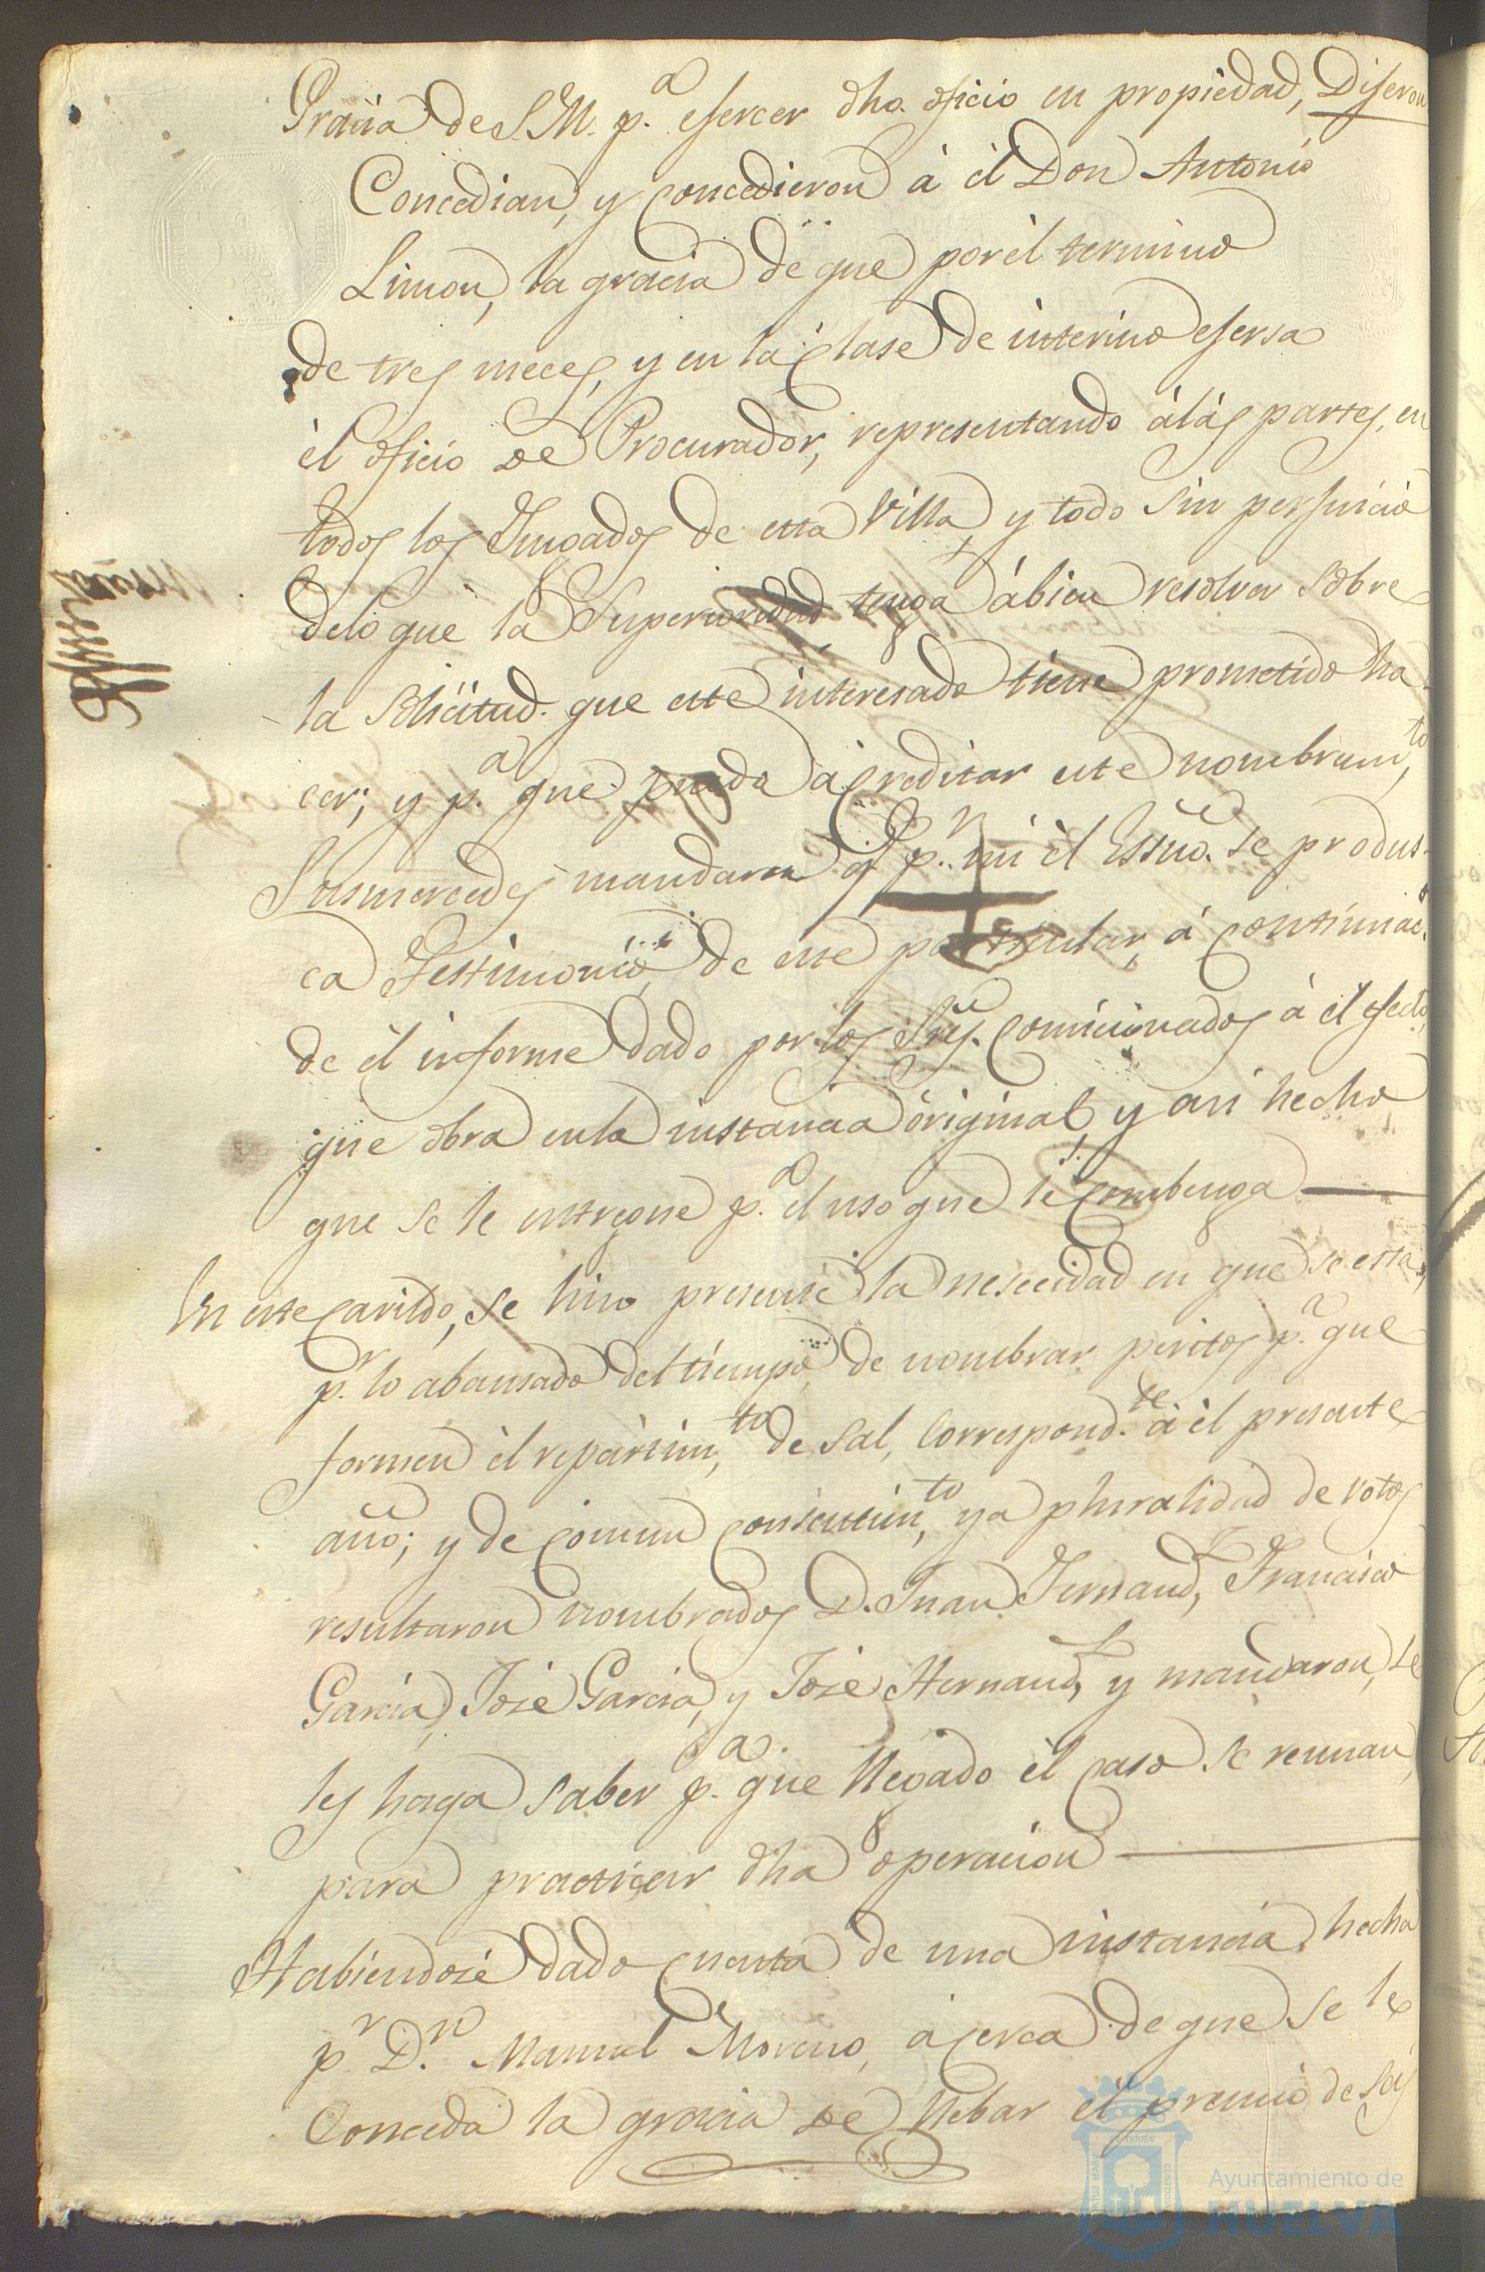 Gracia de S.M. p.ª eserser dho. oficio en propiedad, Dijeron
Concedian, y concedieron à èl Don Antonio
Limon, la gracia de que por èl termino
de tres meces, y en la clase de interino esersa
èl oficio de Procurador, representando àlas partes, en
todos los Jusgados de esta Villa, y todo sin persuicio
delo que la Superioridad tenga àbien resolver sobre
la solicitud que este interesado tiene prometido ha
cer; y p.ª que pueda acreditar este nombram.to,
Susmercedes mandaron q.e p.r mi èl Essno. se produs-
ca Testimonio, de este particular, á continuac.n
de èl informe dado por los Sres. comicionados á èl efecto,
que obra enla instancia òriginal, y asi hecho
que se le entregue p.ª el uso que le combenga
En este cavildo, se hiso presente la nesecidad en que se està,
p.r lo abansado del tiempo, de nombrar peritos p.ª que
formen èl repartim.to, de sal, correspond.te à èl presente
año; y de comun consentim.to, ya pluralidad de votos
resultaron nombrados D. Juan Fernand.z, Francisco
Garcia, Josè Garcia, y Josè Hernand.z, y mandaron, se
les haga saber p.ª que llegado èl caso se reunan,
para practicar dha operacion
Habiendose dado cuenta de una instancia hecha
p.r D.n Manuel Moreno, àcerca de que se le
Conceda la gracia de llebar èl premio de seis
Ayuntamiento de
HUELVA